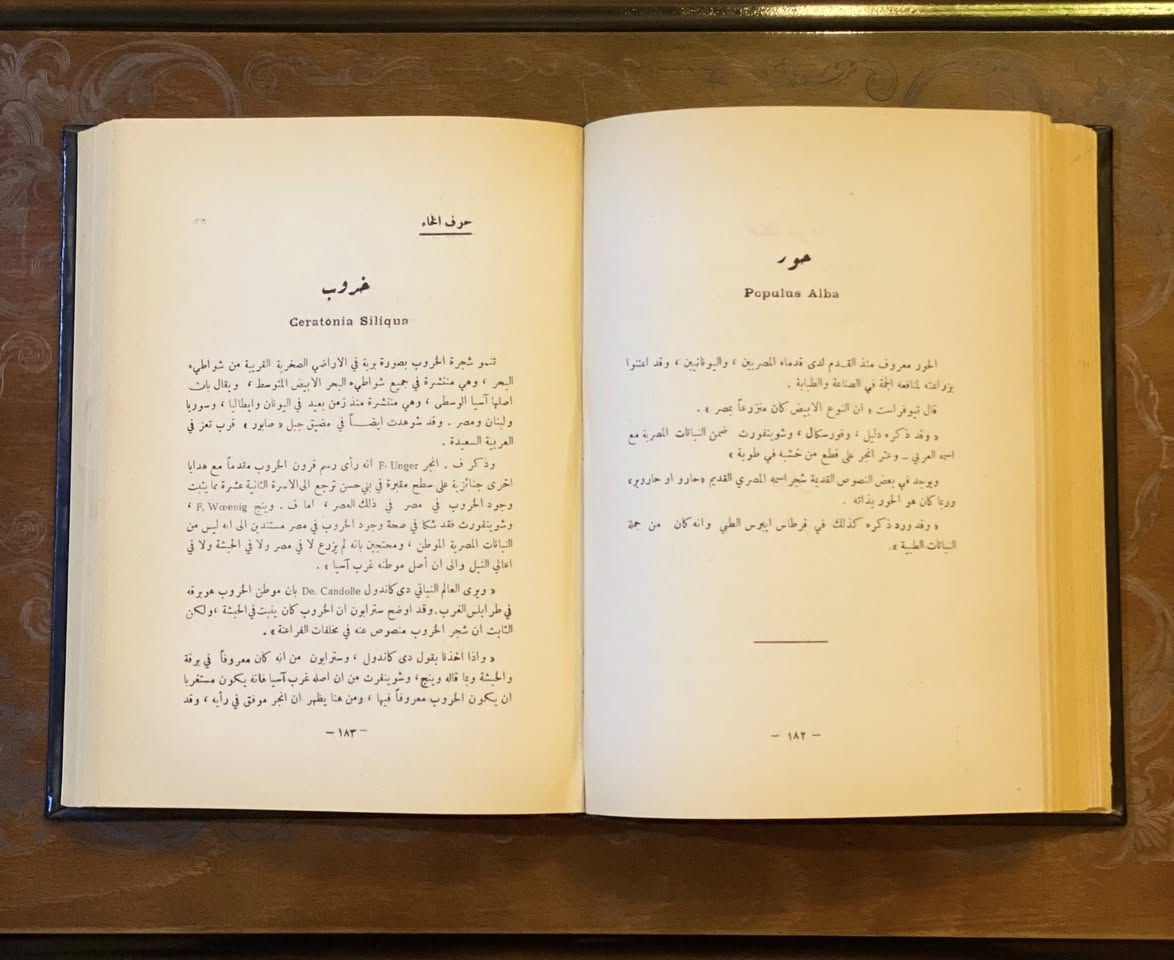 حور
Populus Alba
الحور معروف منذ القدم لدى قدماء المصريين ، واليونانيين ، وقد اعتنوا
بزراعته لمنافعه الجمة في الصناعة والطبابة .
قال تيوفراست « ان النوع الابيض كان منزرعاً بمصر » .
« وقد ذكره دليل ، وفورسكال ، وشوينفورث ضمن النباتات المصرية مع
اسمه العربي ــ وعثر انجر على قطع من خشبه في طوبة »
ويوجد في بعض النصوص القديمة شجر اسمه المصري القديم «حارو او حارويو»
وربما كان هو الحور بذاته .
« وقد ورد ذكره كذلك في قرطاس ايبرس الطبي وانه كان من جملة
النباتات الطبية » .
— ١٨٢ —
حرف الخاء
خروب
Ceratonia Siliqua
تنمو شجرة الخروب بصورة برية في الاراضي الصخرية القريبة من شواطيء
البحر ، وهي منتشرة في جميع شواطيء البحر الابيض المتوسط ، ويقال بان
اصلها آسيا الوسطى ، وهي منتشرة منذ زمن بعيد في اليونان وايطاليا ، وسوريا
ولبنان ومصر . وقد شوهدت ايضاً في مضيق جبل « صابور » قرب تعز في
العربية السعيدة .
وذكر ف . انجر F. Unger انه رأى رسم قرون الخروب مقدماً مع هدايا
اخرى جنائزية على سطح مقبرة في بني حسن ترجع الى الاسرة الثانية عشرة مما يثبت
وجود الخروب في مصر في ذلك العصر ، اما ف . وينج F. Wœenig ،
وشوينفورث فقد شكا في صحة وجود الخروب في مصر مستندين الى انه ليس من
النباتات المصرية الموطن ، ومحتجين بانه لم يزرع لا في مصر ولا في الحبشة ولا في
اعالي النيل والى ان أصل موطنه غرب آسيا » .
« ويرى العالم النباتي دى كاندول De. Candolle بان موطن الخروب هو برقه
في طرابلس الغرب . وقد اوضح سترابون ان الخروب كان ينبت في الحبشة ، ولكن
الثابت ان شجر الخروب منصوص عنه في مخلفات الفراعنة » .
« واذا اخذنا بقول دى كاندول ، وسترابون من انه كان معروفاً في برقة
والحبشة وبما قاله وينج ، وشوينفرث من ان اصله غرب آسيا فانه يكون مستغربا
ان يكون الخروب معروفاً فيها ، ومن هنا يظهر ان انجر موفق في رأيه ، وقد
— ١٨٣ —